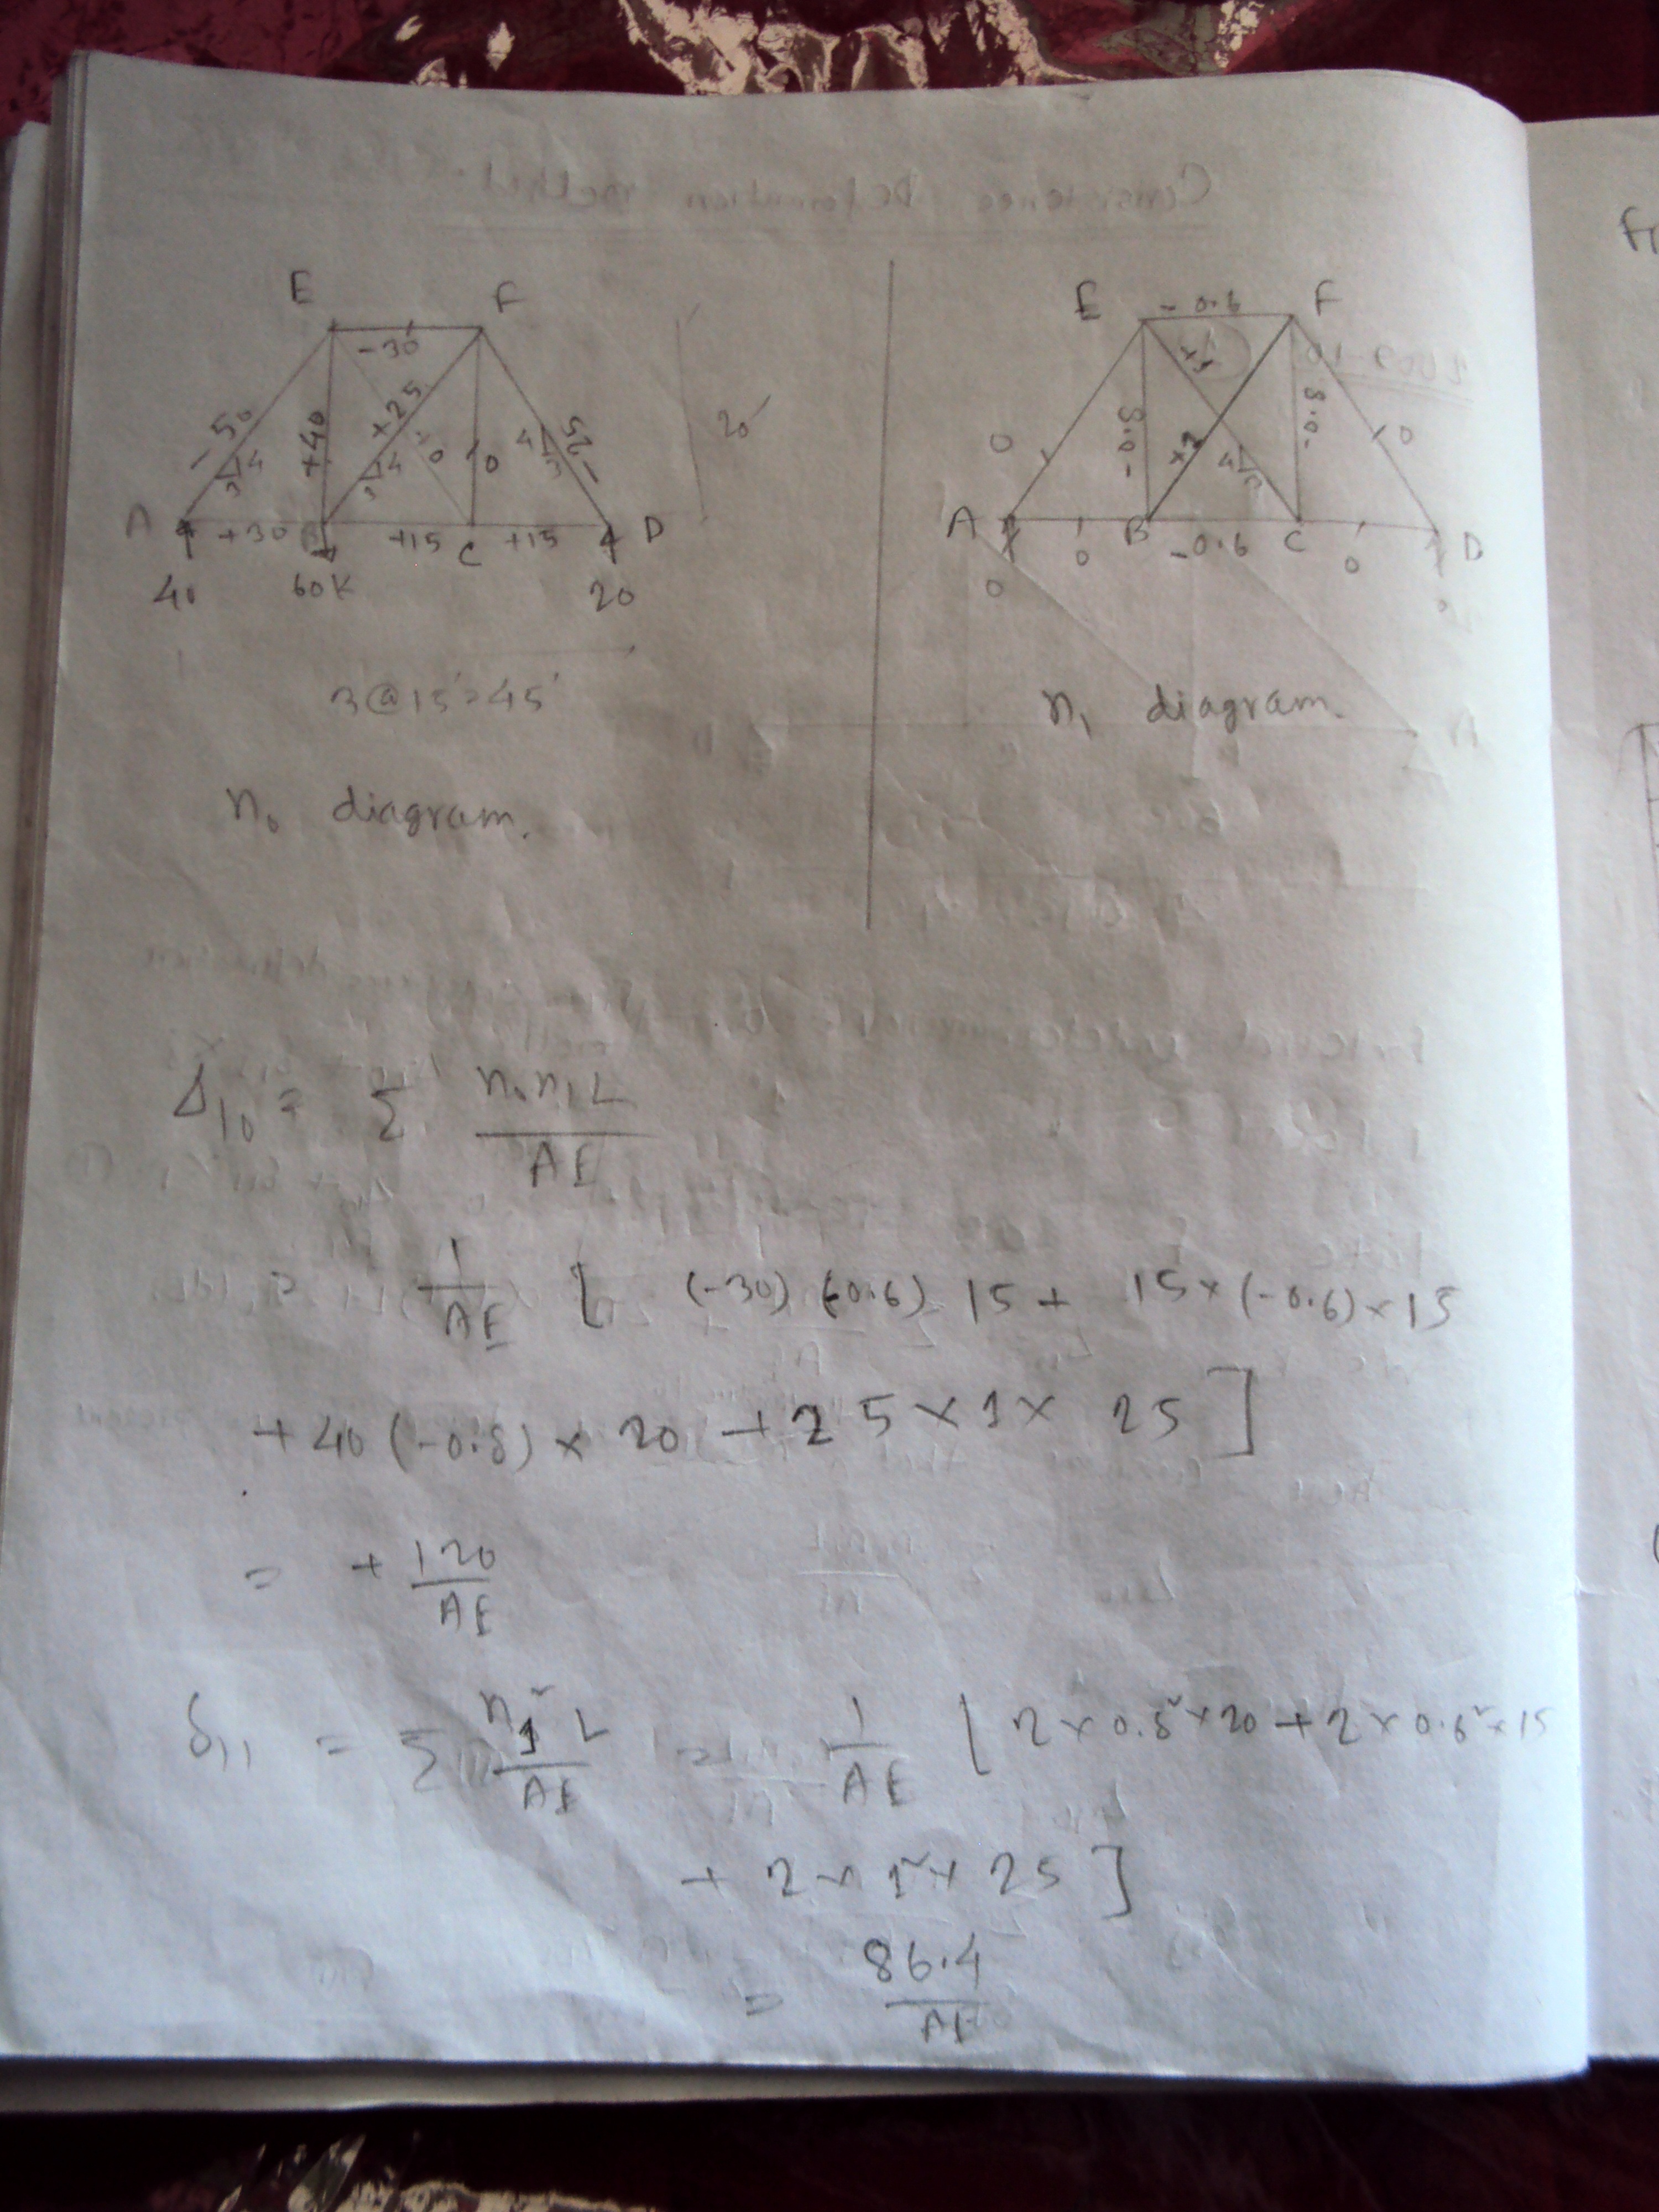 E F
-30
-50 +40 +25 0 0 -25
3 4 3 4 4 3
20'
A +30 B +15 C +15 D
40 60K 20
3@15'=45'
n₀ diagram.
E -0.6 F
+1
0 -0.8 +1 4 3 -0.8 0
A 0 B -0.6 C 0 D
0 0
n₁ diagram.
Δ₁₀ = Σ n₀n₁L / AE
= 1/AE [ (-30) (-0.6) 15 + 15×(-0.6)×15
+ 40 (-0.8) × 20 + 25 × 1 × 25 ]
= + 120/AE
δ₁₁ = Σ n₁²L / AE = 1/AE [ 2×0.8²×20 + 2×0.6²×15
+ 2 × 1² × 25 ]
= 86.4/AE